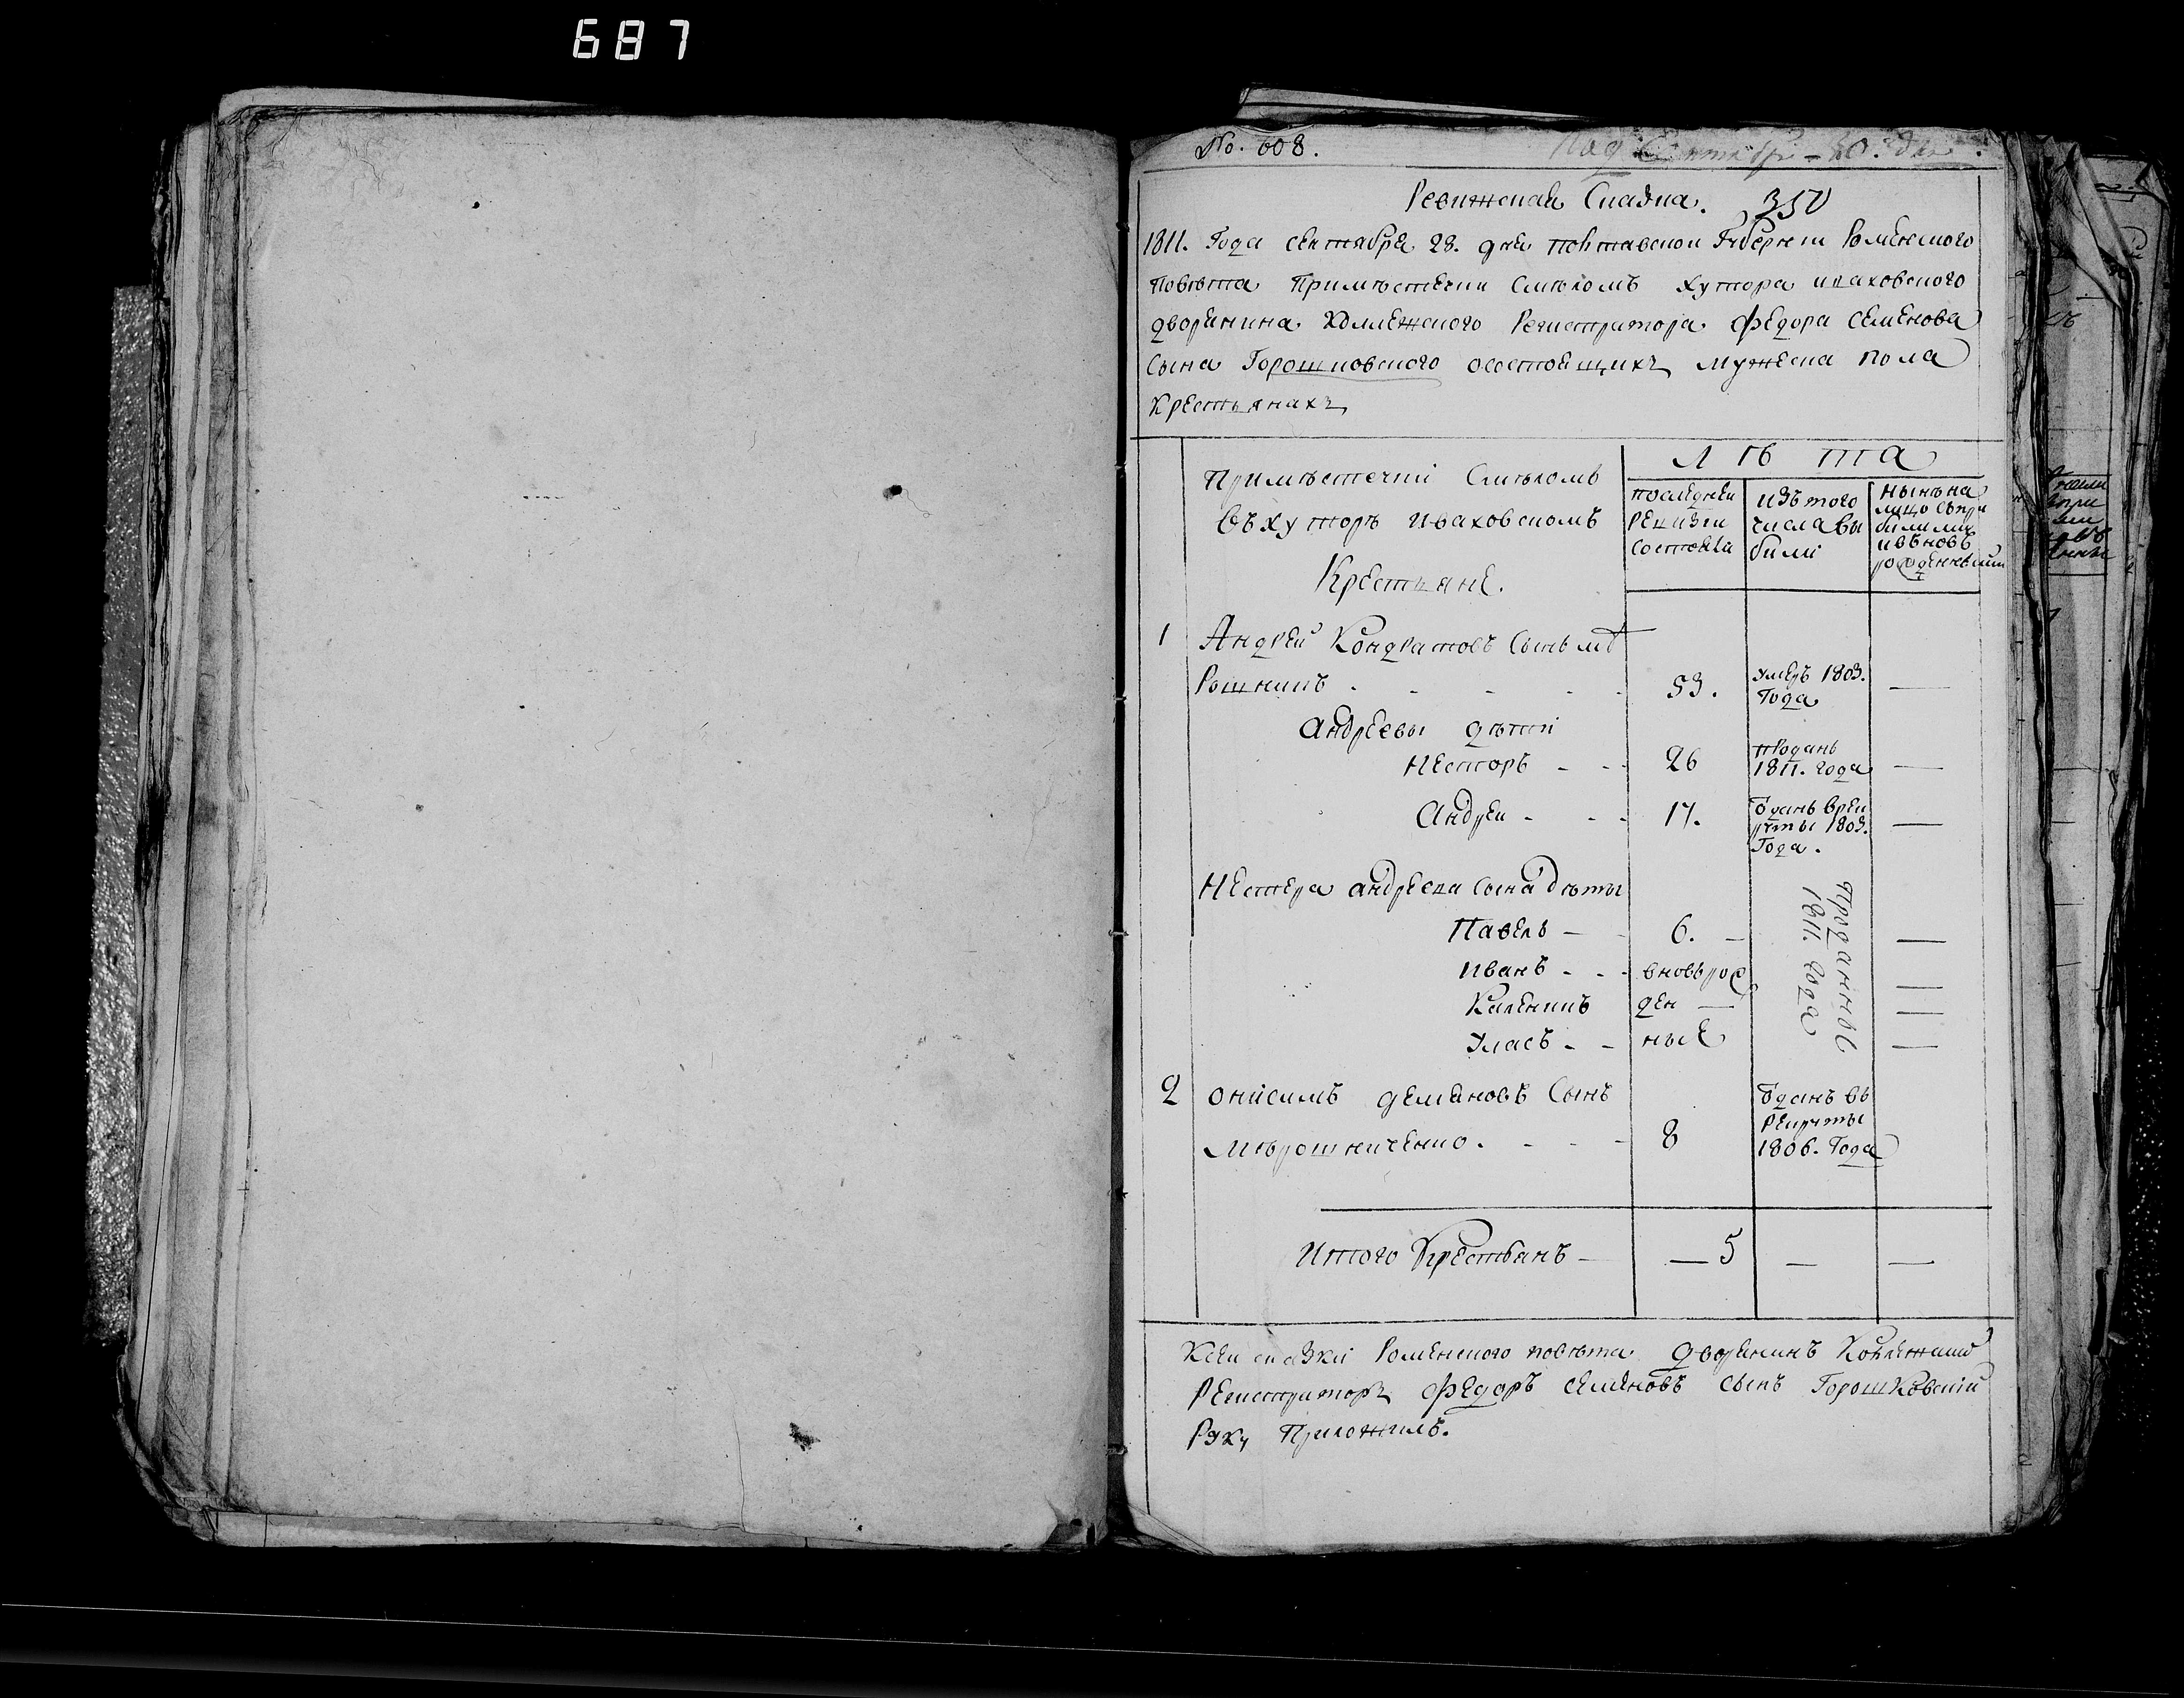 687
No. 608.
Ревижская Скаска. 350
1811. Года сентября 28. дня полтавской Губернии Роменского
повѣта Примѣстечки Смѣломъ хутора иваховского
дворянина Коллежского Регистратора Федора Семенова
Сына Горошковского осостоящихъ мужеска пола
Крестьянахъ
Примѣстечкѣ Смѣломъ
въхуторѣ иваховскомъ
Крестьяне.
Лѣта
последней
ревизии
состояли
изътого
числа вы
били
нынѣна
лицо съпри
билими
ивновь
рожденными
1 Андрей Кондратовъ Сынъ мѣ
Рошникъ - - - 53. умеръ 1803.
Года —
Андреевы дѣти
Несторъ - - - 26 проданъ
1811. года —
Андрей - - - 17. ѿданъ врек
руты 1803.
Года. —
Нестера андреева сына дѣты
Павелъ — 6. — —
иванъ - - - вновьрож —
Каленикъ ден — —
Уласъ - - ные —
Проданные
1811. Года
2 онисимъ демяновъ Сынъ
мѣрошниченко. - - - 8
ѿданъ въ
рекруты
1806. Года
Итого Крестьянъ — — 5 — —
Ксей скаски Роменского повѣта Дворянинъ Коллежский
Регистраторъ Федоръ Семеновъ сынъ Горошковский
Руку Приложилъ.